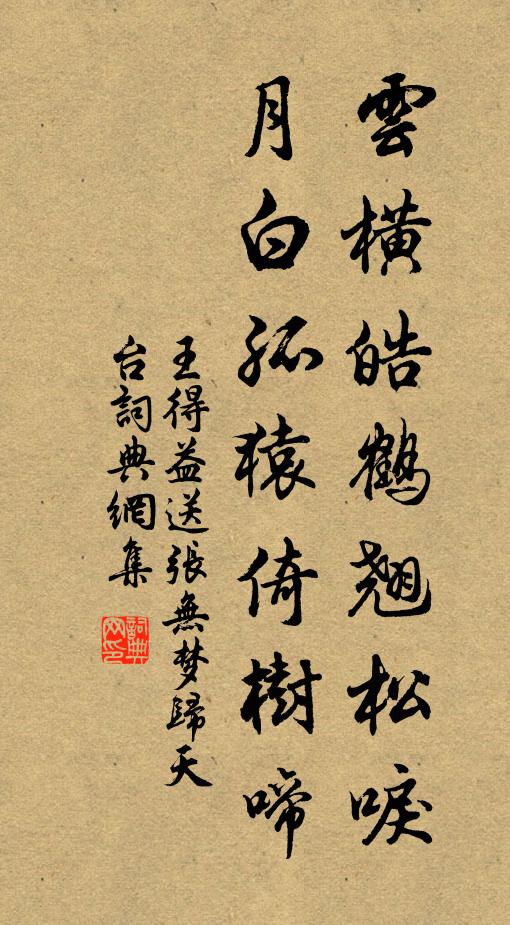 雲橫皓鶴翹松唳
月白孤猿倚樹啼
王得益送張無梦歸天
台詞典網集
詞典网印